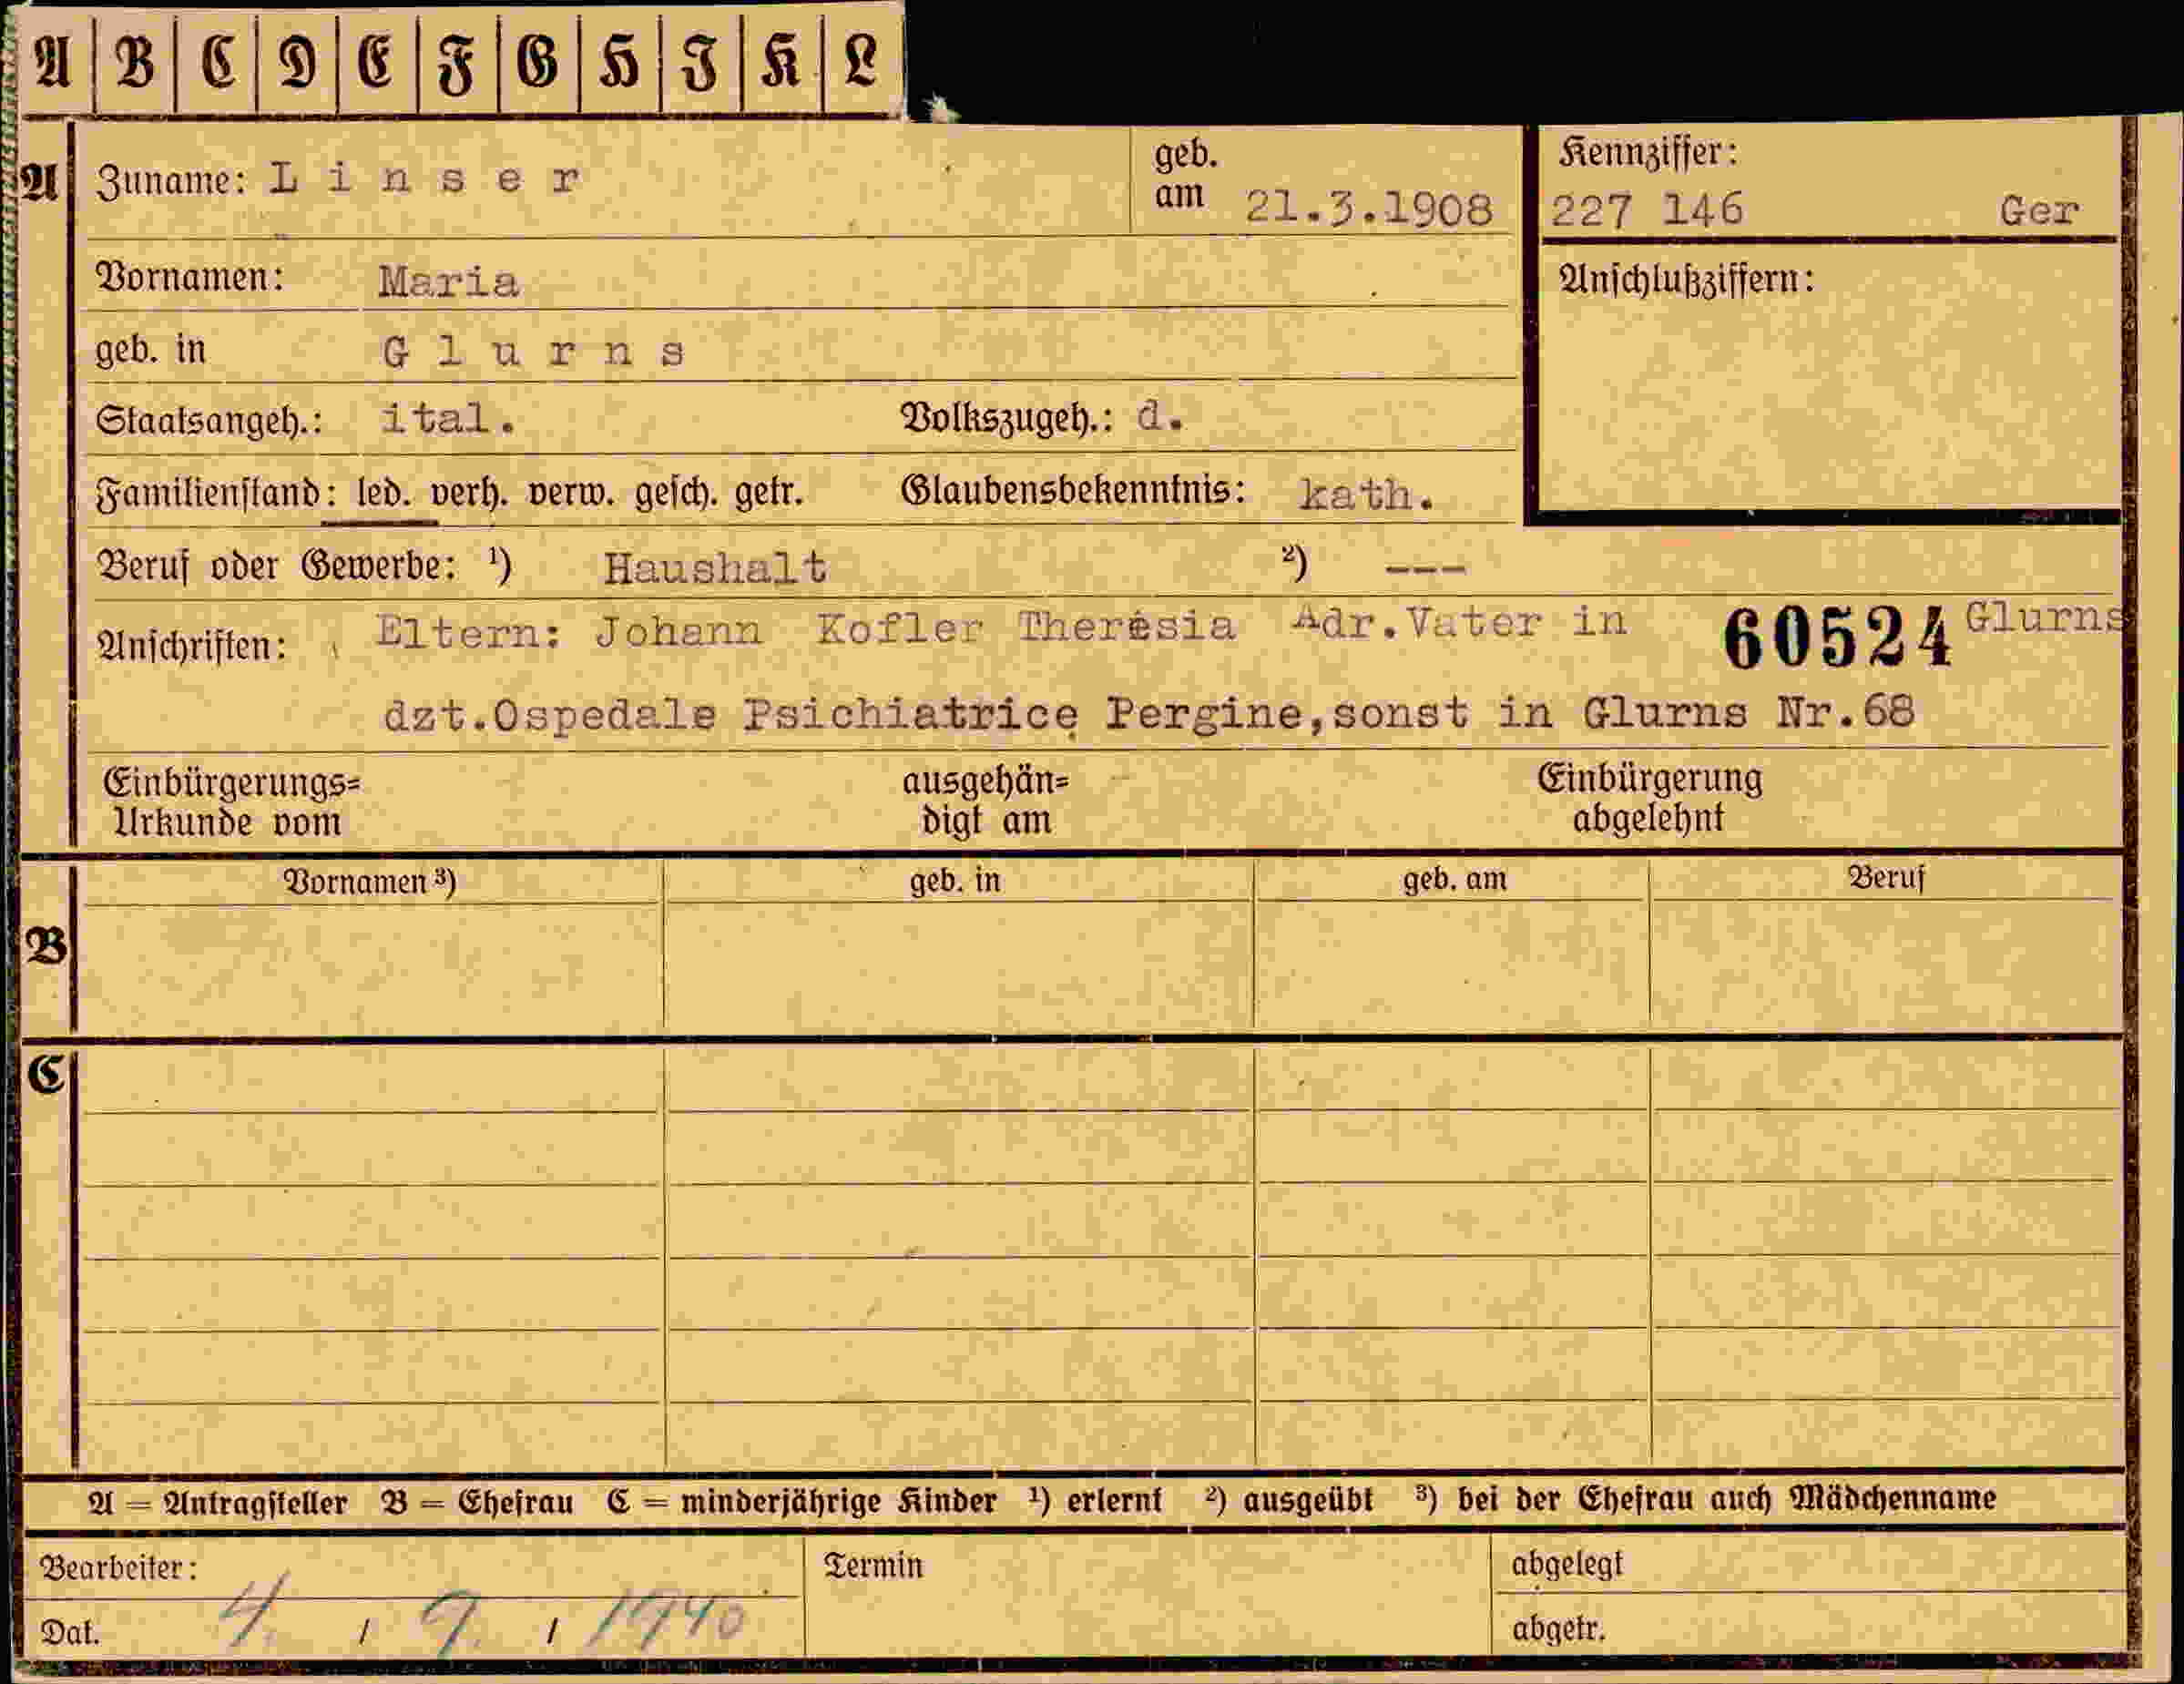 A B C D E F G H I K L
A Zuname: Linser geb. am 21.3.1908 Kennziffer:
227 146 Ger
Vornamen: Maria Anschlußziffern:
geb. in Glurns
Staatsangeh.: ital. Volkszugeh.: d.
Familienstand: led. verh. verw. gesch. getr. Glaubensbekenntnis: kath.
Beruf oder Gewerbe: 1) Haushalt 2) ---
Anschriften: Eltern: Johann Kofler Theresia Adr.Vater in 60524 Glurns
dzt.Ospedale Psichiatrice Pergine,sonst in Glurns Nr.68
Einbürgerungs= ausgehän= Einbürgerung
Urkunde vom digt am abgelehnt
Vornamen 3) geb. in geb. am Beruf
B
C
A = Antragsteller B = Ehefrau C = minderjährige Kinder 1) erlernt 2) ausgeübt 3) bei der Ehefrau auch Mädchenname
Bearbeiter: Termin abgelegt
Dat. 4. / 9. / 1940 abgetr.